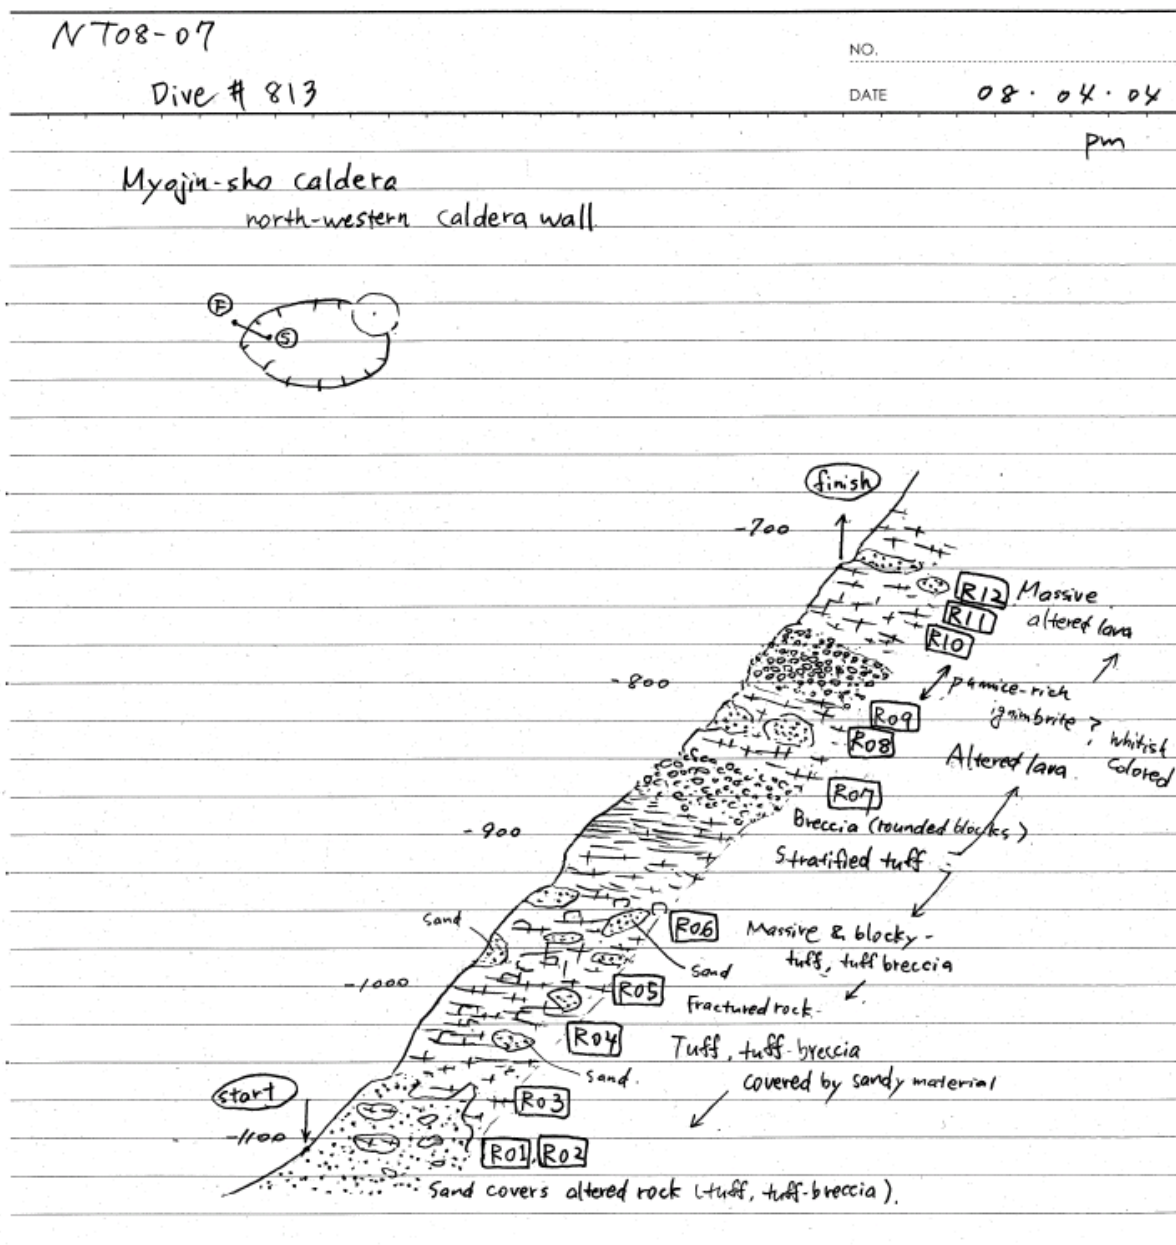 NT08-07
NO.
Dive # 813
DATE 08・04・04
pm
Myojin-sho caldera
north-western caldera wall
F
S
finish
-700
R12 Massive
R11 altered lava
R10
-800
pumice-rich
R09 ignimbrite ?
R08 whitish
Altered lava colored
R07
-900 Breccia (rounded blocks)
Stratified tuff
sand
R06 Massive & blocky-
sand tuff, tuff breccia
-1000
R05 Fractured rock
R04 Tuff, tuff-breccia
sand. covered by sandy material
start
R03
-1100
R01, R02
Sand covers altered rock (tuff, tuff-breccia).